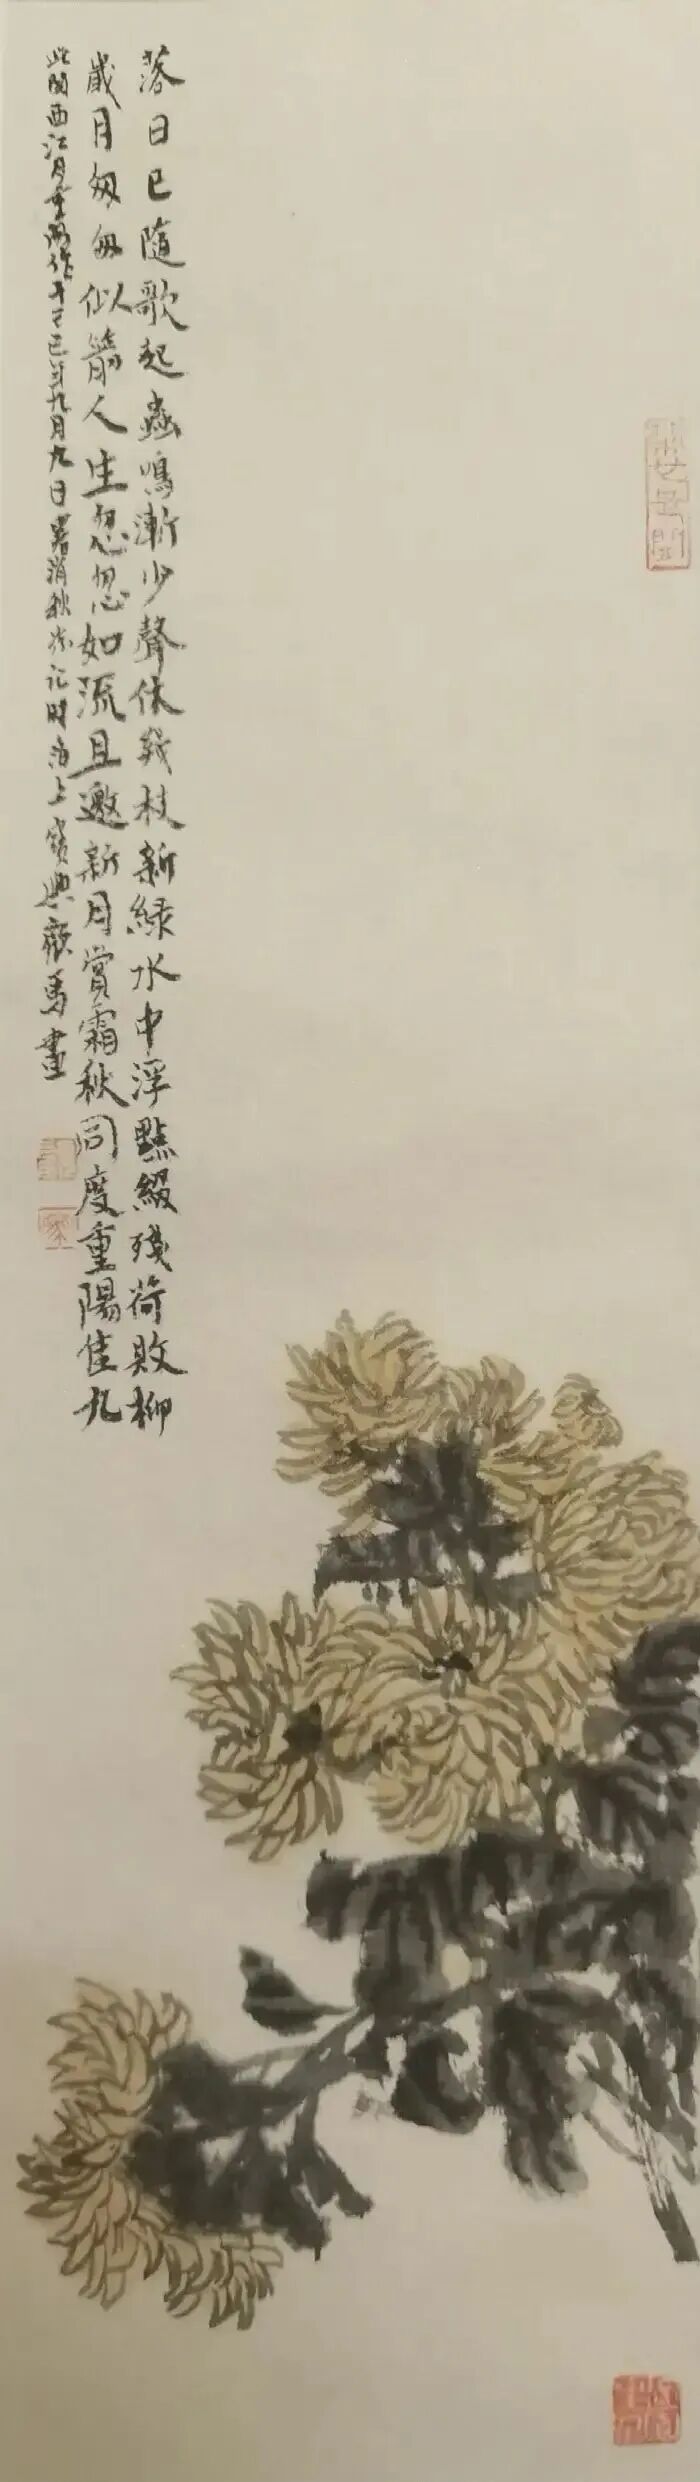 落日已隨歌起蟲鳴漸少聲休幾枝新綠水中浮點綴殘荷敗柳
歲月匆匆似箭人生忽忽如流且邀新月賞霜秋同度重陽佳九
此闋西江月重陽作于乙巳年九月九日暑消秋涼記時海上